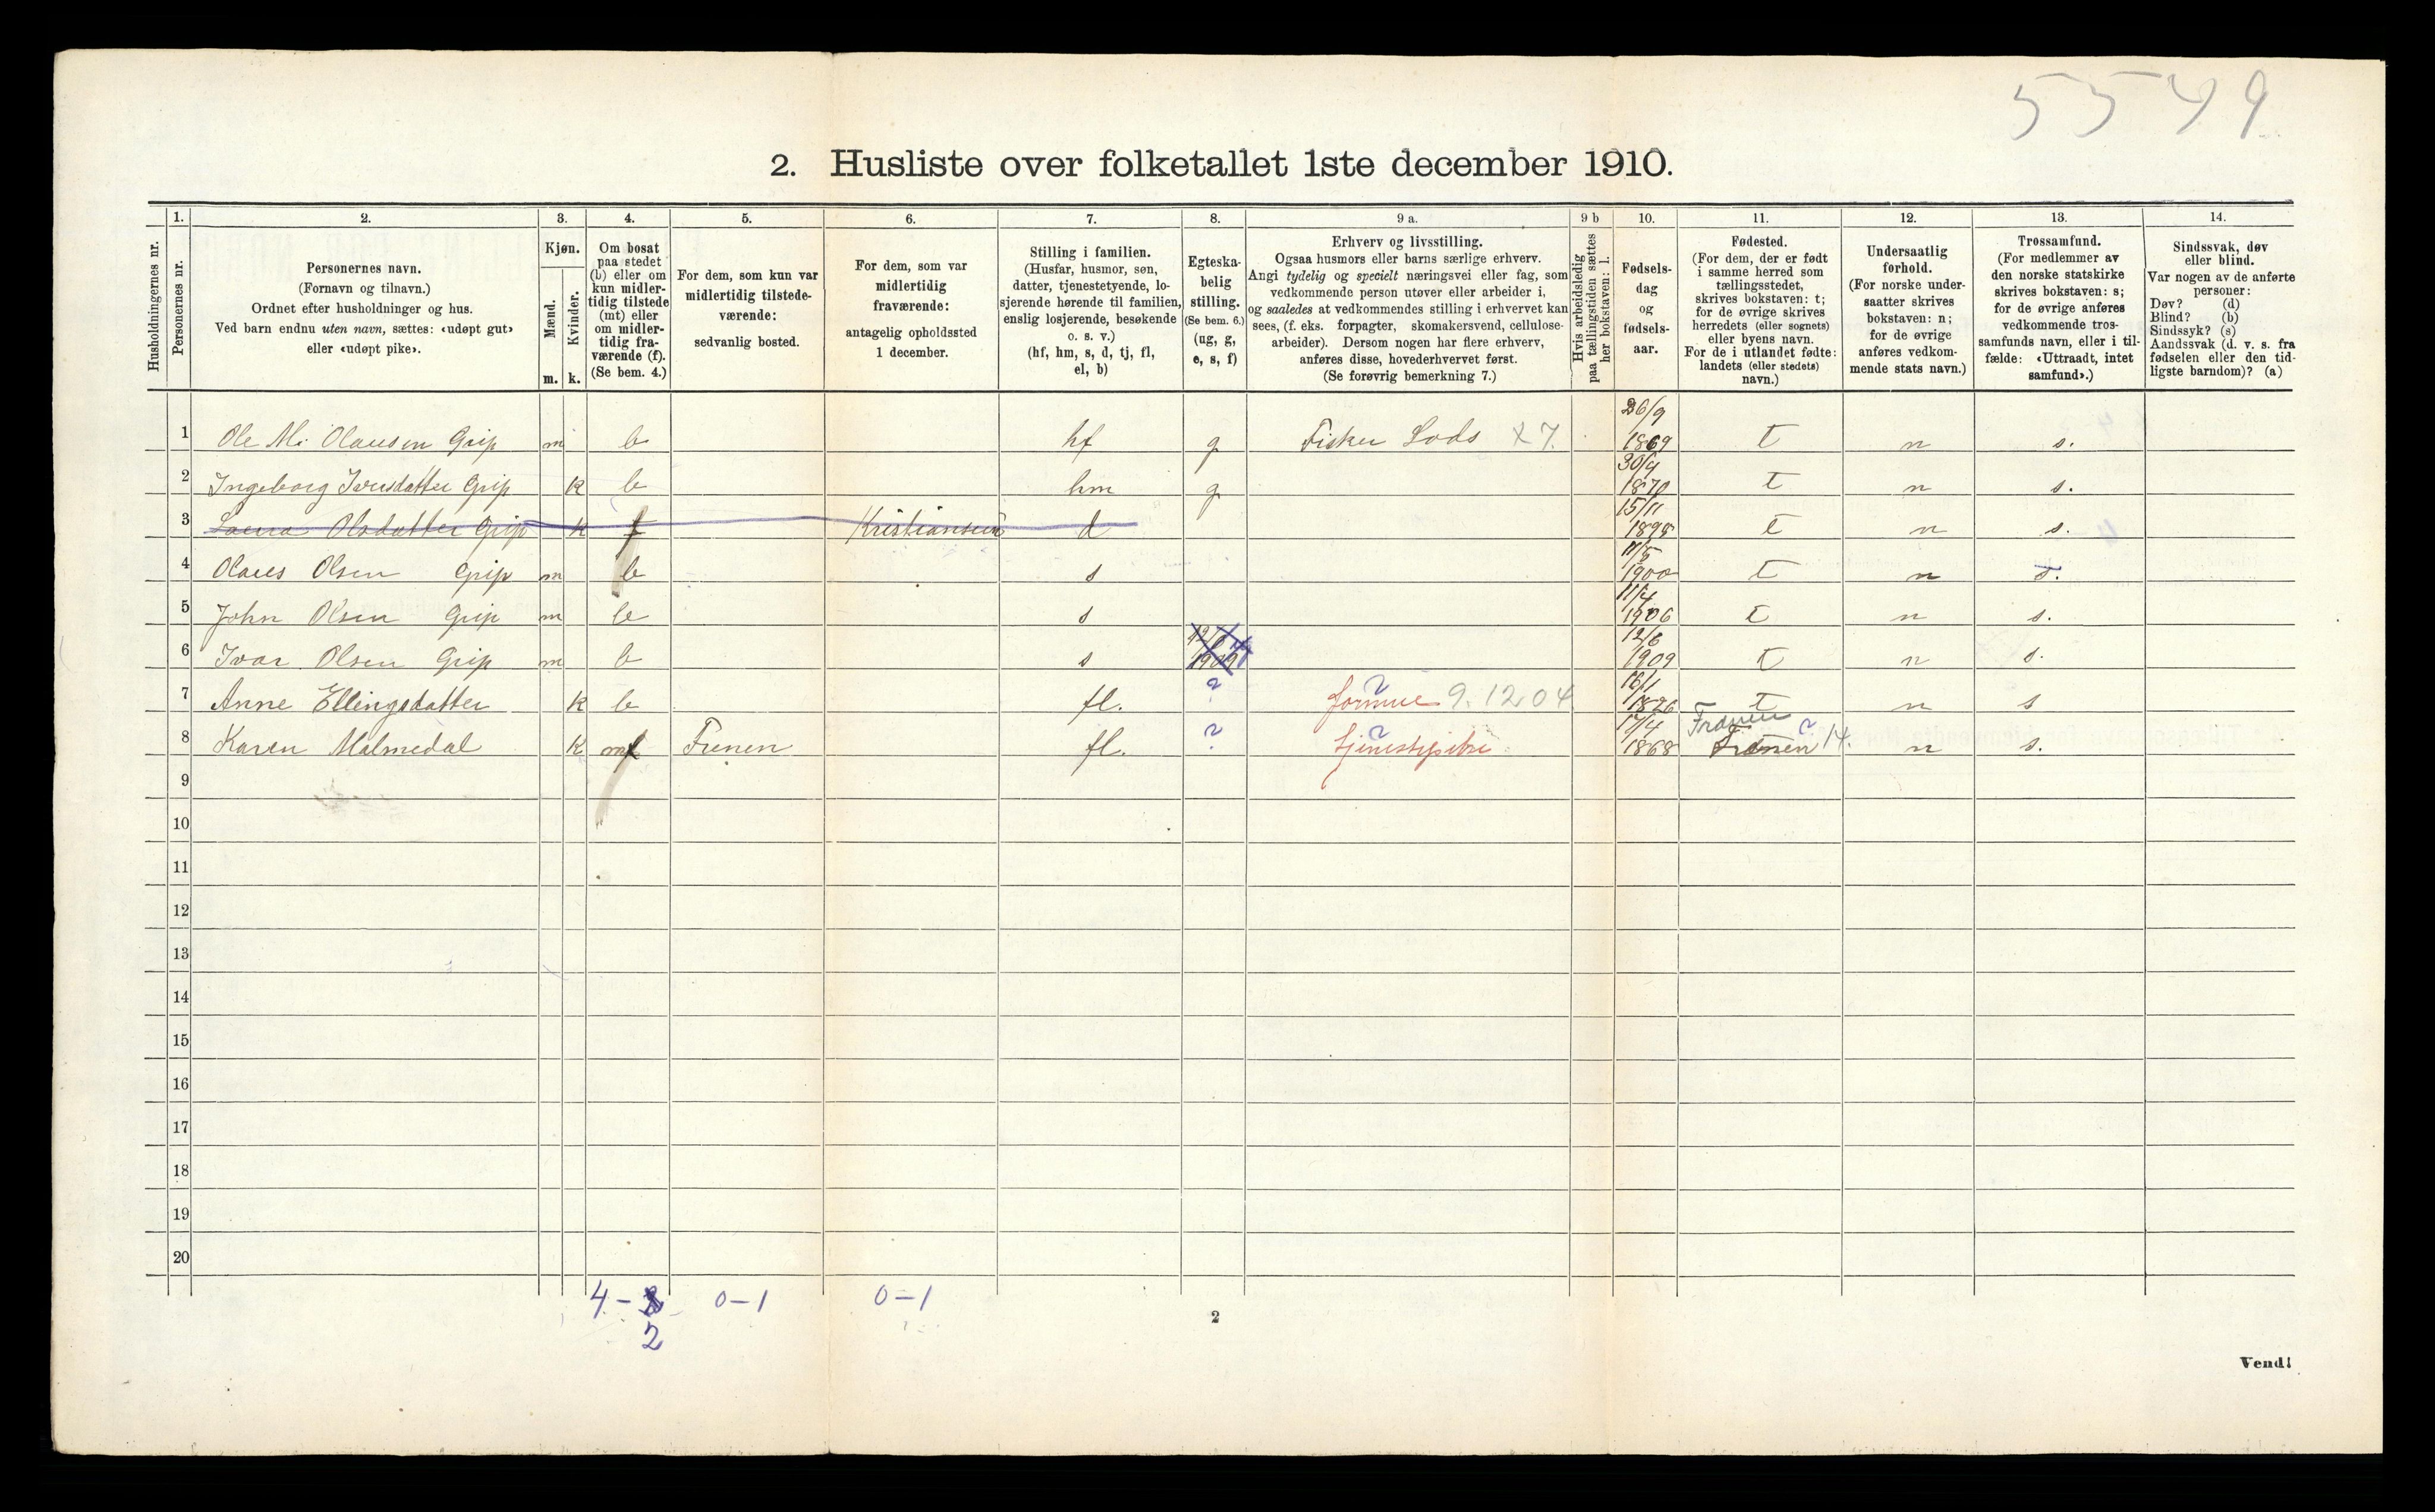 5549
2. Husliste over folketallet 1ste december 1910.
Husholdningernes nr.
1.
Personernes nr.
2.
Personernes navn.
(Fornavn og tilnavn.)
Ordnet efter husholdninger og hus.
Ved barn endnu uten navn, sættes: «udøpt gut»
eller «udøpt pike».
3.
Kjøn.
Mænd.
Kvinder.
m. k.
4.
Om bosat
paa stedet
(b) eller om
kun midler-
tidig tilstede
(mt) eller
om midler-
tidig fra-
værende (f).
(Se bem. 4.)
5.
For dem, som kun var
midlertidig tilstede-
værende:
sedvanlig bosted.
6.
For dem, som var
midlertidig
fraværende:
antagelig opholdssted
1 december.
7.
Stilling i familien.
(Husfar, husmor, søn,
datter, tjenestetyende, lo-
sjerende hørende til familien,
enslig losjerende, besøkende
o. s. v.)
(hf, hm, s, d, tj, fl,
el, b)
8.
Egteska-
belig
stilling.
(Se bem. 6.)
(ug, g,
e, s, f)
9 a.
Erhverv og livsstilling.
Ogsaa husmors eller barns særlige erhverv.
Angi tydelig og specielt næringsvei eller fag, som
vedkommende person utøver eller arbeider i,
og saaledes at vedkommendes stilling i erhvervet kan
sees, (f. eks. forpagter, skomakersvend, cellulose-
arbeider). Dersom nogen har flere erhverv,
anføres disse, hovederhvervet først.
(Se forøvrig bemerkning 7.)
9 b
Hvis arbeidsledig
paa tællingstiden sættes
her bokstaven: l.
10.
Fødsels-
dag
og
fødsels-
aar.
11.
Fødested.
(For dem, der er født
i samme herred som
tællingsstedet,
skrives bokstaven: t;
for de øvrige skrives
herredets (eller sognets)
eller byens navn.
For de i utlandet fødte:
landets (eller stedets)
navn.)
12.
Undersaatlig
forhold.
(For norske under-
saatter skrives
bokstaven: n;
for de øvrige
anføres vedkom-
mende stats navn.)
13.
Trossamfund.
(For medlemmer av
den norske statskirke
skrives bokstaven: s;
for de øvrige anføres
vedkommende tros-
samfunds navn, eller i til-
fælde: «Uttraadt, intet
samfund».)
14.
Sindssvak, døv
eller blind.
Var nogen av de anførte
personer:
Døv? (d)
Blind? (b)
Sindssyk? (s)
Aandssvak (d. v. s. fra
fødselen eller den tid-
ligste barndom)? (a)
1 Ole M. Olausen Grip m b hf g Fisker Lods x 7. 26/9 1869 t n s.
2 Ingeborg Iversdatter Grip k b hm g 30/4 1870 t n s.
3 Laura Olsdatter Grip k f Kristiansund d 15/11 1898 t n s.
4 Olaus Olsen Grip m b s 11/5 1900 t n s.
5 John Olsen Grip m b s 11/4 1906 t n s.
6 Ivar Olsen Grip m b s 1909 12/6 1909 t n s.
7 Anne Ellingsdatter k b fl. ? formue 9.1204 16/1 1826 t n s
8 Karen Malmedal k mt Frenen fl. ? tjenestepike 17/4 1868 Frænen 14. n s.
9
10
11
12
13
14
15
16
17
18
19
20
4 - 0-1 0-1
2
2
Vend!